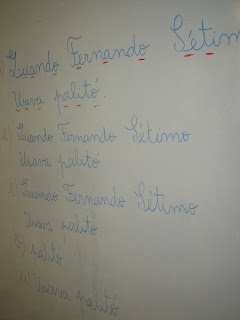 Quando Fernando Sétimo
Usava palitó.
2) Quando Fernando Sétimo
Usava palitó
Quando Fernando Sétimo
Usava palitó
palito
Usava palitó